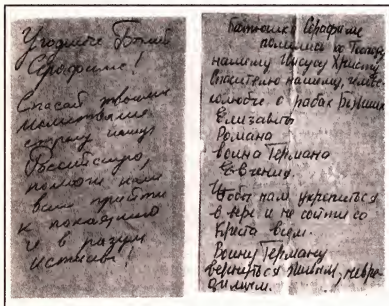 Угодниче Божий
Серафиме!
Спасай твоими
молитвами
страну нашу
Российскую,
помоги нам
всем прийти
к покаянию
и в разум
истины!
батюшка Серафиме
помолись ко Господу
нашему Иисусу Христу
Спасителю нашему,
о рабах Божиих
Елизаветы
Романа
воина Германа
Евгения.
Чтобы нам укрепиться
в вере и не сойти со
Креста всем.
Воину Герману
вернуться живым, невре-
димым.